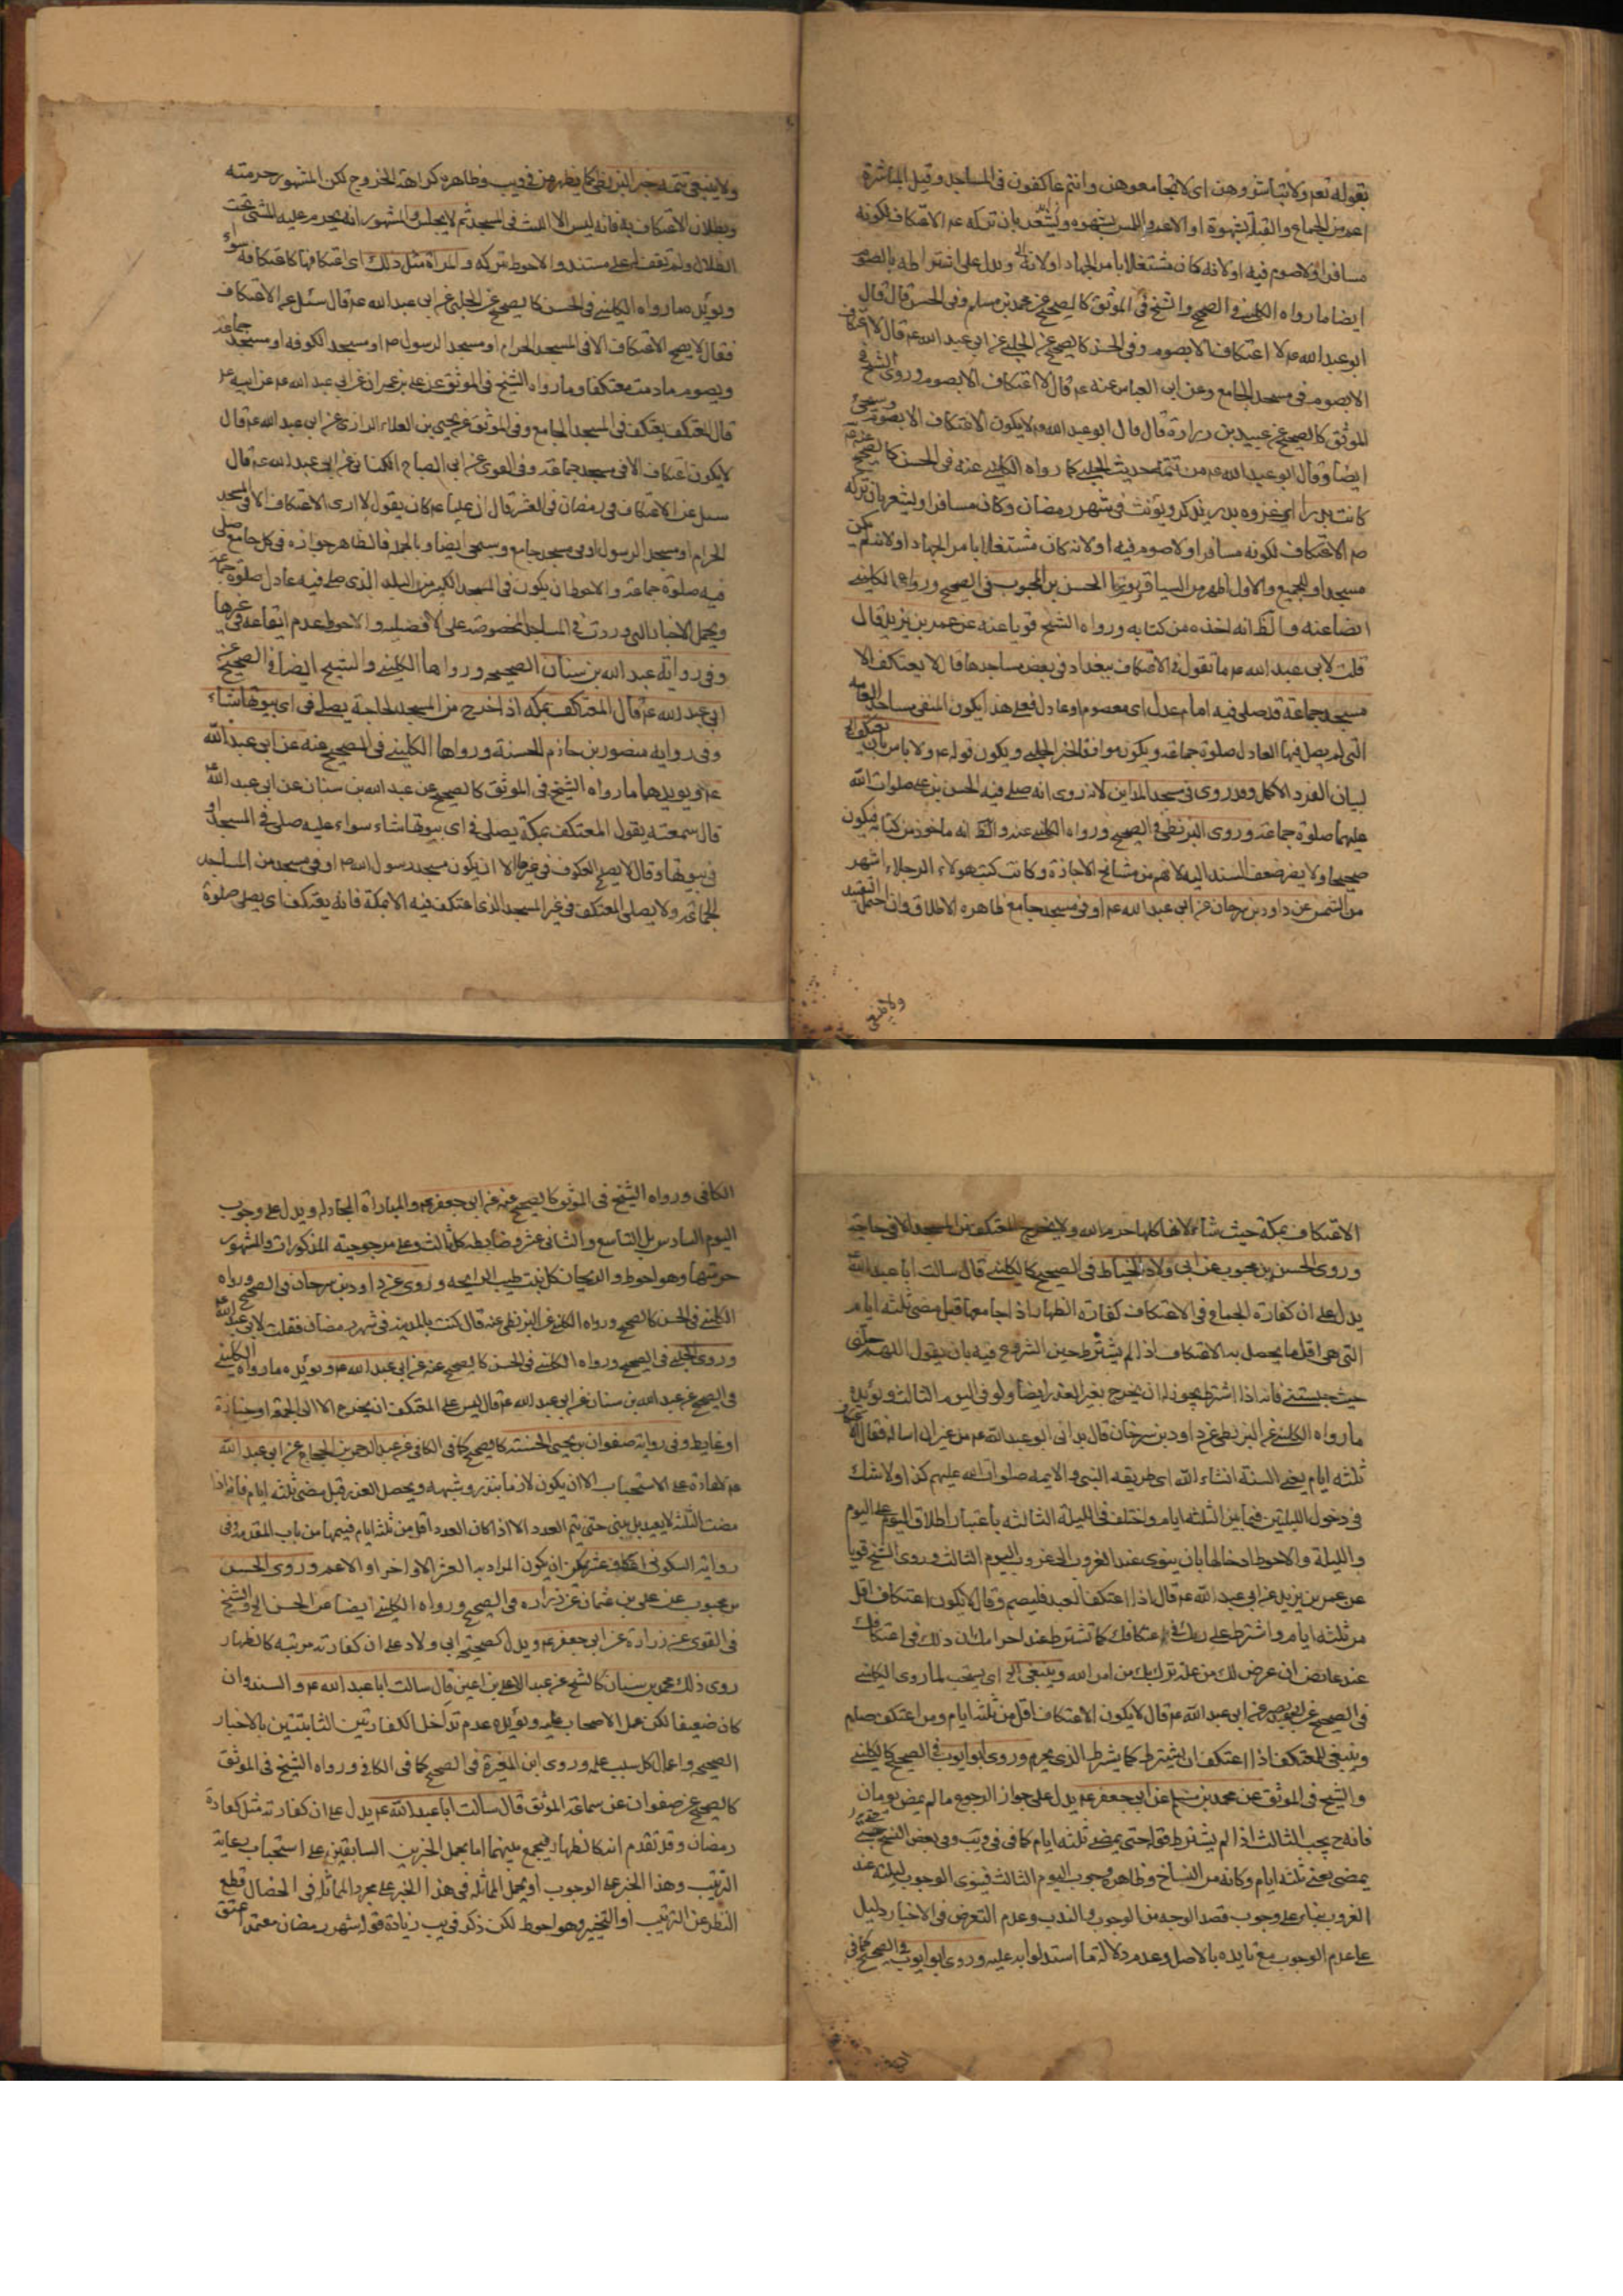 بقوله تعم ولا تباشروهن اى لا تجامعوهن وانتم عاكفون فى المساجد وقيل المباشرة
اعم من الجماع والقبلة بشهوة او الاعم واللمس بشهوه ويشعر بان تركه عم الاعتكاف لكونه
مسافرا ولا صوم فيه او لانه كان مشتغلا بامر الجهاد او لانه ويدل على اشتراطه بالصوم
ايضا ما رواه الكلينى فى الصحيح والشيخ فى الموثق كالصحيح عن محمد بن مسلم وفى الحسن قال قال
ابو عبد الله عم لا اعتكاف الا بصوم وفى الحسن كالصحيح عن الحلبى عن ابى عبد الله عم قال لا اعتكاف
الا بصوم فى مسجد الجامع وعن ابى العباس عنه عم قال لا اعتكاف الا بصوم وروى الشيخ فى
الموثق كالصحيح عن عبيد بن زرارة قال قال ابو عبد الله عم لا يكون الاعتكاف الا بصوم وسيجئ
ايضا وقال ابو عبد الله عم من تتمة حديث الحلبى كما رواه الكلينى عنه فى الحسن كالصحيح عنه عم
كانت بدر اى غزوه بدر يذكر ويؤنث فى شهر رمضان وكان مسافرا ويشعر بان تركه
صم الاعتكاف لكونه مسافرا ولا صوم فيه او لانه كان مشتغلا بامر الجهاد او لانه لم يكن
مسجد او للجميع والاول اظهر من السياق وروى الحسن بن المحبوب فى الصحيح ورواه الكلينى
ايضا عنه والظ انه اخذه من كتابه ورواه الشيخ قويا عنه عن عمر بن يزيد قال
قلت لابى عبد الله عم ما تقول فى الاعتكاف ببغداد فى بعض مساجدها قال لا يعتكف الا
مسجد جماعة قد صلى فيه امام عدل اى معصوم او عادل فعلى هذا يكون المنفى مساجد العامه
التى لم يصل فيها العادل صلوة جماعة ويكون موافقا لخبر الحلبى ويكون قوله عم ولا باس بان يعتكف الخ
لبيان الفرد الاكمل وقد روى فى مسجد المداين لانه روى انه صلى فيه الحسن بن على صلوات الله
عليهما صلوة جماعة وروى البزنطى فى الصحيح ورواه الكلينى عنه والظ انه ماخوذ من كتابه فيكون
صحيحا ولا يضر ضعف السند اليه لانهم من مشايخ الاجازة وكانت كتب هولاء الرجلاء اشهر
من الشمس عن داود بن سرحان عن ابى عبد الله عم او فى مسجد جامع ظاهره الاطلاق وان احتمل التقييد
ولا ينبغى
ولا ينبغى تتمه خبر البزنطى كما يظهر من فى ويب وظاهره كراهة الخروج لكن المشهور حرمته
وبطلان الاعتكاف به فانه ليس الا اللبث فى المسجد ثم لا يجلس والمشهور انه يحرم عليه المشى تحت
الظلال ولم نقف لهم على مستند والاحوط تركه والمراة مثل ذلك اى اعتكافها كاعتكافه سواء
ويؤيده ما رواه الكلينى فى الحسن كالصحيح عن الحلبى عن ابى عبد الله عم قال سئل عن الاعتكاف
فقال لا يصح الاعتكاف الا فى المسجد الحرام او مسجد الرسول صم او مسجد الكوفه او مسجد جماعة
ويصوم ما دمت معتكفا وما رواه الشيخ فى الموثق عن على بن عمران عن ابى عبد الله عم عن ابيه عم
قال المعتكف يعتكف فى المسجد الجامع وفى الموثق عن يحيى بن العلاء الرازى عن ابى عبد الله عم قال
لا يكون اعتكاف الا فى مسجد جماعة وفى القوى عن ابى الصباح الكنانى عن ابى عبد الله عم قال
سئل عن الاعتكاف فى رمضان فى العشر قال ان عليا عم كان يقول لا ارى الاعتكاف الا فى المسجد
الحرام او مسجد الرسول او فى مسجد جامع وسيجئ ايضا وبالجملة فالظاهر جوازه فى كل جامع صلى
فيه صلوة جماعة والاحوط ان يكون فى المسجد الكبير من البلد الذى صلى فيه عادل صلوة جماعة
ويحمل الاخبار التى وردت فى المساجد المخصوصة على الافضليه والاحوط عدم ايقاعه فى غيرها
وفى رواية عبد الله بن سنان الصحيحه ورواها الكلينى والشيخ ايضا فى الصحيح عن
ابى عبد الله عم قال المعتكف بمكه اذ اخرج من المسجد لحاجة يصلى فى اى بيوتها شاء
وفى روايه منصور بن حازم الحسنة ورواها الكلينى فى الصحيح عنه عن ابى عبد الله
عم ويويدها ما رواه الشيخ فى الموثق كالصحيح عن عبد الله بن سنان عن ابى عبد الله عم
قال سمعته يقول المعتكف بمكة يصلى فى اى بيوتها شاء سواء عليه صلى فى المسجد او
فى بيوتها وقال لا يصلح العكوف فى غيرها الا ان يكون مسجد رسول الله صم او فى مسجد من المساجد
الجماعة ولا يصلى المعتكف فى غير المسجد الذى اعتكف فيه الا بمكة فانه يعتكف اى يصلى صلوة
الاعتكاف بمكة حيث شاء لانها كلها حرم الله ولا يخرج المعتكف من المسجد الا فى حاجة
وروى الحسن بن محبوب عن ابى ولاد الخياط فى الصحيح كالكلينى قال سالت ابا عبد الله عم
يدل على ان كفارة الجماع فى الاعتكاف كفارة الظهار اذا جامعها قبل مضى ثلثه ايام
التى هى اقل ما يحصل به الاعتكاف اذا لم يشترط حين الشروع فيه بان يقول اللهم حلنى
حيث حبستنى فانه اذا اشترط يجوز له ان يخرج بغير العذر ايضا ولو فى اليوم الثالث ويؤيده
ما رواه الكلينى عن البزنطى عن داود بن سرحان قال بدانى ابو عبد الله عم من غير ان اساله فقال
ثلثه ايام يعنى السنة انشاء الله اى طريقه النبى والايمه صلوات الله عليهم كذا ولا شك
فى دخول الليلتين فيما بين الثلثه ايام واختلف فى الليلة الثالثه باعتبار اطلاق اليوم على اليوم
والليلة والاحوط ادخالها بان ينوى عند الغروب الى غروب اليوم الثالث وروى الشيخ قويا
عن عمر بن يزيد عن ابى عبد الله عم قال اذا اعتكف العبد فليصم وقال لا يكون اعتكاف اقل
من ثلثه ايام واشترط على ربك فى اعتكافك كما تشترط عند احرامك ان ذلك فى اعتكافك
عند عارض ان عرض لك من علة تنزل بك من امر الله وينبغى الخ اى يستحب لما روى الكلينى
فى الصحيح عن ابى بصير عن ابى عبد الله عم قال لا يكون الاعتكاف اقل من ثلثة ايام ومن اعتكف صام
وينبغى للمعتكف اذا اعتكف ان يشترط كما يشترط الذى يحرم وروى ابو ايوب فى الصحيح كالكلينى
والشيخ فى الموثق عن محمد بن مسلم عن ابى جعفر عم يدل على جواز الرجوع ما لم يمض يومان
فانه ح يجب الثالث اذا لم يشترط قوله حتى يمضى ثلثه ايام كما فى فى ويب وفى بعض النسخ
يمضى يعنى ثلثه ايام وكانه من النساخ وظاهره وجوب اليوم الثالث فينوى الوجوب ليلته عند
الغروب بناء على وجوب قصد الوجه من الوجوب والندب وعدم التعرض فى الاخبار دليل
على عدم الوجوب مع تايده بالاصل وعدم دلالة ما استدلوا به عليه وروى ابو ايوب فى الصحيح كما فى
الكافى ورواه الشيخ فى الموثق كالصحيح عنه عن ابى جعفر عم والمماراة المجادله ويدل على وجوب
اليوم السادس بل التاسع والثانى عشر وضابطه كل ثالث وعلى مرجوحية المذكورات والمشهور
حرمتها وهو احوط والريحان كل نبت طيب الرايحه وروى عن داود بن سرحان فى الصحيح ورواه
الكلينى فى الحسن كالصحيح ورواه الكلينى عن البزنطى عنه قال كنت بالمدينه فى شهر رمضان فقلت لابى عبد الله عم
وروى الحلبى فى الصحيح ورواه الكلينى فى الحسن كالصحيح عنه عن ابى عبد الله عم ويؤيده ما رواه الكلينى
فى الصحيح عن عبد الله بن سنان عن ابى عبد الله عم قال ليس على المعتكف ان يخرج الا الى الجمعة او جنازة
او غايط وفى رواية صفوان بن يحيى الحسنة كالصحيح كما فى الكافى عن عبد الرحمن بن الحجاج عن ابى عبد الله
عم الاعادة على الاستحباب الا ان يكون لازما بنذر وشبهه ويحصل العذر قبل مضى ثلثه ايام فانه اذا
مضت الثلثة لا يعيد بل يبنى حتى يتم العدد الا اذا كان العدد اقل من ثلثه ايام فيتمها من باب المقدمه وفى
رواية السكونى اعتكاف عشر يمكن ان يكون المراد به العشر الاواخر او الاعم وروى الحسن
بن محبوب عن على بن عثمان عن زراره فى الصحيح ورواه الكلينى ايضا عن الحسن الخ والشيخ
فى القوى عن زرارة عن ابى جعفر عم ويدل كصحيحة ابى ولاد على ان كفارته مرتبه كالظهار
روى ذلك محمد بن سنان كالشيخ عن عبد الاعلى بن اعين قال سالت ابا عبد الله عم والسند وان
كان ضعيفا لكن عمل الاصحاب عليه ويؤيده عدم تداخل الكفارتين الثابتتين بالاخبار
الصحيحه واعمال كل سبب عمله وروى ابن المغيرة فى الصحيح كما فى الكافى ورواه الشيخ فى الموثق
كالصحيح عن صفوان عن سماعة الموثق قال سالت ابا عبد الله عم يدل على ان كفارته مثل كفارة
رمضان وقد تقدم انه كالظهار فيجمع بينهما اما بحمل الخبرين السابقين على استحباب رعاية
الترتيب وهذا الخبر على الوجوب او بحمل المماثلة فى هذا الخبر على مجرد المماثلة فى الخصال قطع
النظر عن الترتيب او التخيير وهو احوط لكن ذكر فى يب زيادة قوله شهر رمضان متعمدا عتق